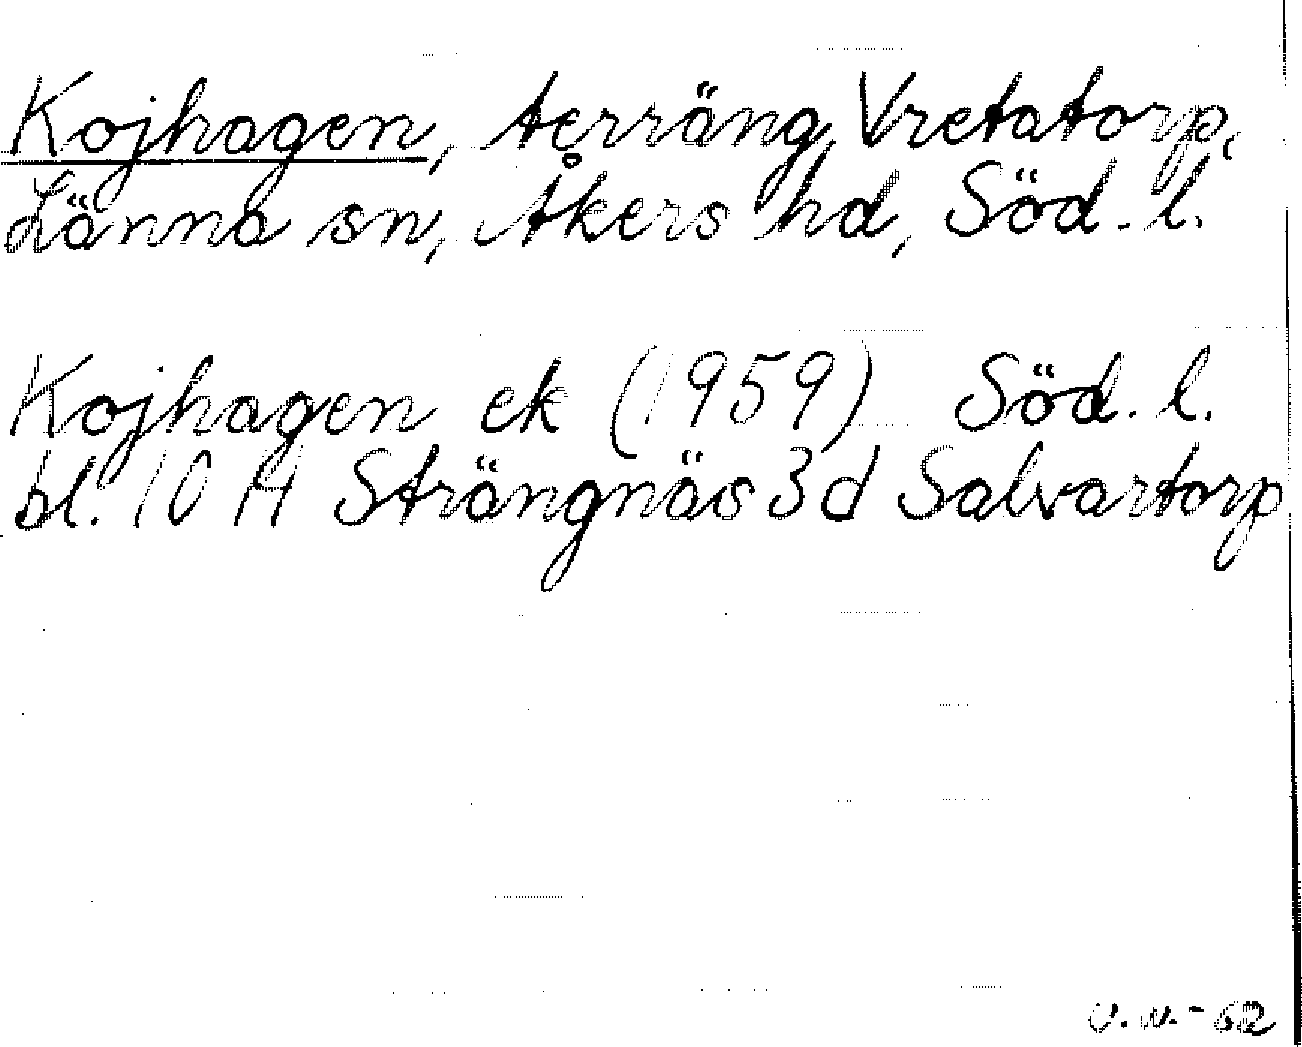 Kojhagen, terräng, Vretatorp,
Länna sn, Åkers hd, Söd. l.
Kojhagen ek (1959) Söd. l.
bl. 10 H Strängnäs 3 d Salvartorp
U.W.-62